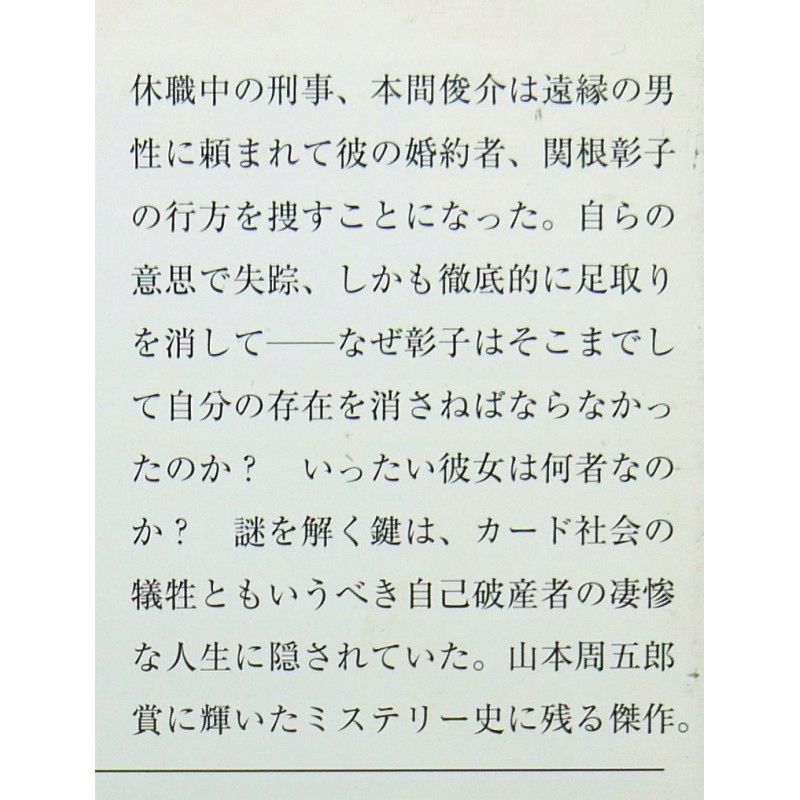 休職中の刑事、本間俊介は遠縁の男
性に頼まれて彼の婚約者、関根彰子
の行方を捜すことになった。自らの
意思で失踪、しかも徹底的に足取り
を消して――なぜ彰子はそこまでし
て自分の存在を消さねばならなかっ
たのか？　いったい彼女は何者なの
か？　謎を解く鍵は、カード社会の
犠牲ともいうべき自己破産者の凄惨
な人生に隠されていた。山本周五郎
賞に輝いたミステリー史に残る傑作。